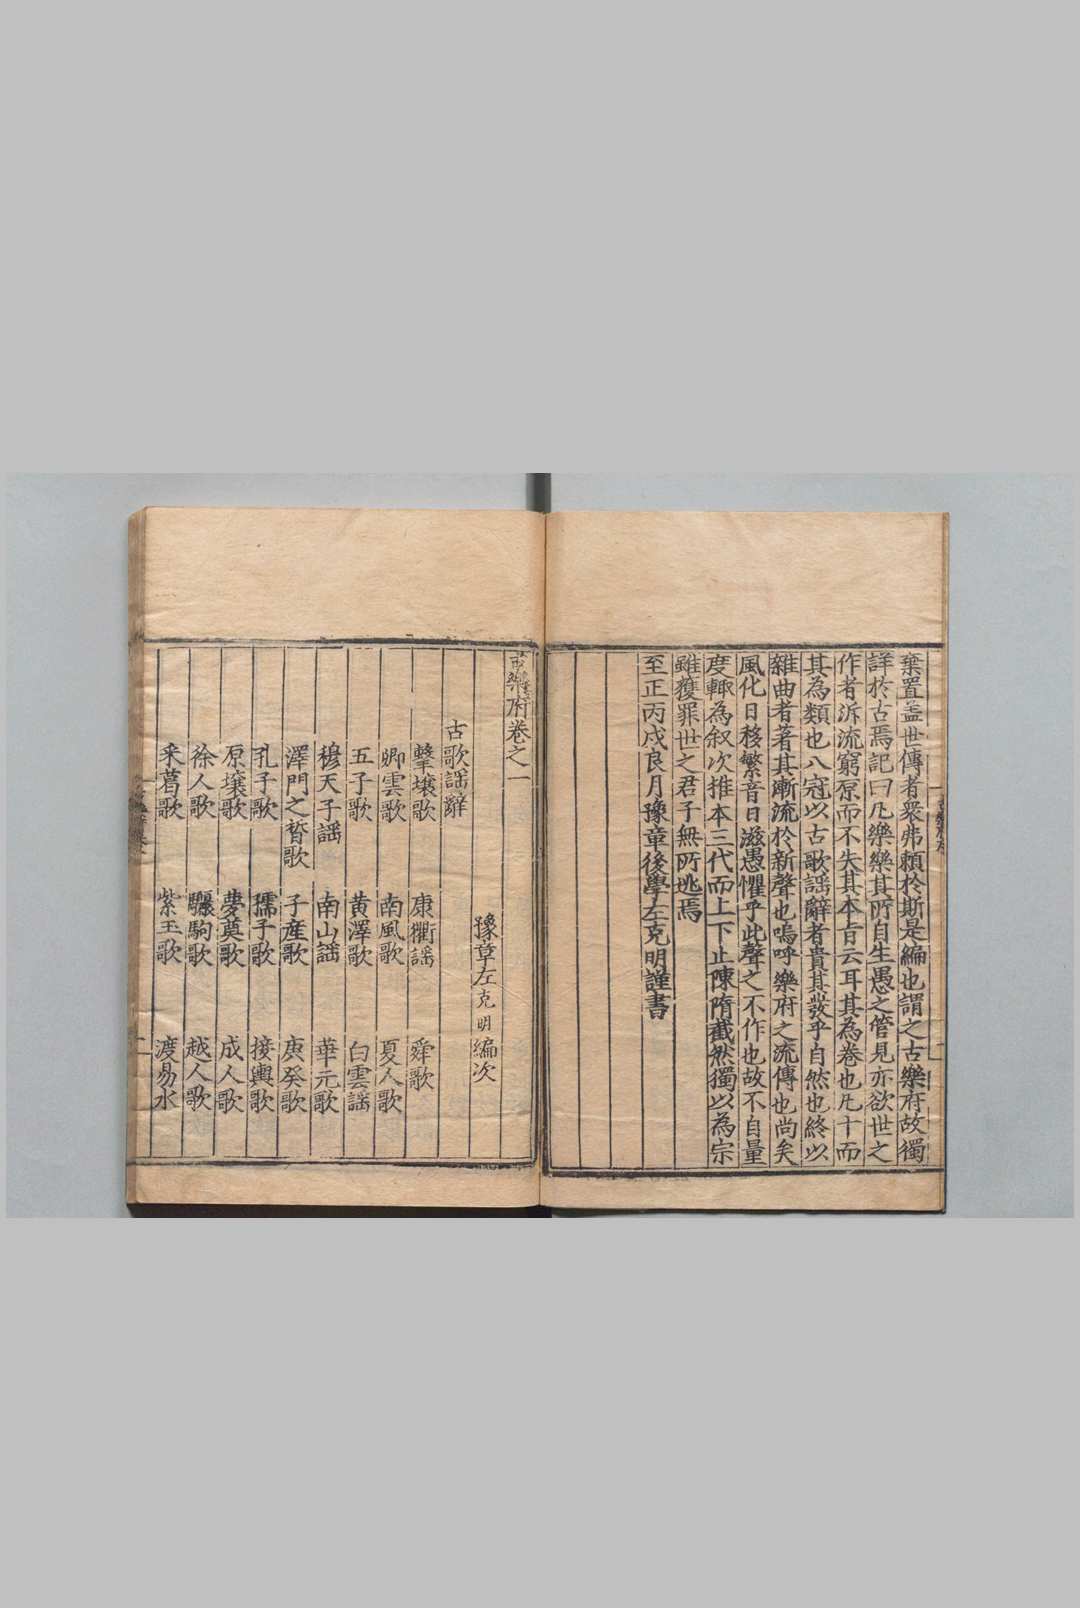 棄置蓋世傳者衆弗頼於斯是編也謂之古樂府故獨
詳於古焉記曰凡樂樂其所自生愚之管見亦欲世之
作者泝流窮原而不失其本旨云耳其為卷也凡十而
其為類也八冠以古歌謡辭者貴其發乎自然也終以
雜曲者著其漸流於新聲也嗚呼樂府之流傳也尚矣
風化日移繁音日滋愚懼乎此聲之不作也故不自量
度輙為叙次推本三代而上下止陳隋截然獨以為宗
雖獲罪世之君子無所逃焉
至正丙戌良月豫章後學左克明謹書
古樂府卷之一
豫章左克明編次
古歌謡辭
擊壤歌 康衢謡 舜歌
卿雲歌 南風歌 夏人歌
五子歌 黄澤歌 白雲謡
穆天子謡 南山謡 華元歌
澤門之晳歌 子産歌 庚癸歌
孔子歌 孺子歌 接輿歌
原壤歌 夢奠歌 成人歌
徐人歌 驪駒歌 越人歌
釆葛歌 紫玉歌 渡易水